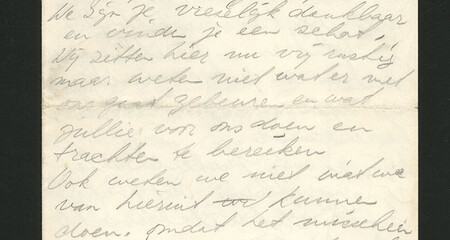 We zijn je vreselijk dankbaar
en vinden je een schat.
Wij zitten hier nu vrij rustig
maar weten niet wat er met
ons gaat gebeuren en wat
jullie voor ons doen en
trachten te bereiken
Ook weten we niet wat we
van hieruit kunnen
doen, omdat het misschien